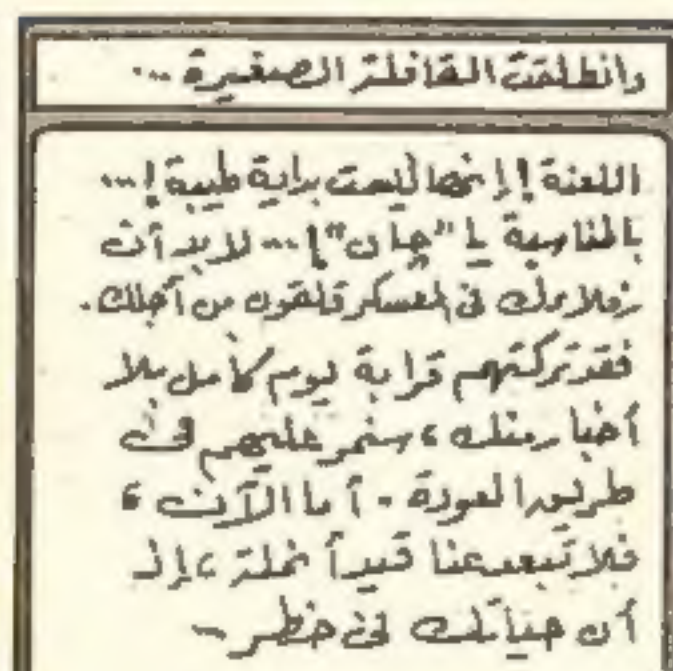 وانطلقت القافلة الصغيرة ...
اللعنة ! إنها ليست بداية طيبة !...
بالمناسبة يا "چان" !... لابد أن
زملاءك فى المعسكر قلقون من أجلك.
فقد تركتهم قرابة يوم كامل بلا
أخبار منك ، سنمر عليهم فى
طريق العودة . أما الآن ،
فلا تبعد عنا قيد أنملة ، إذ
أن حياتك فى خطر ..